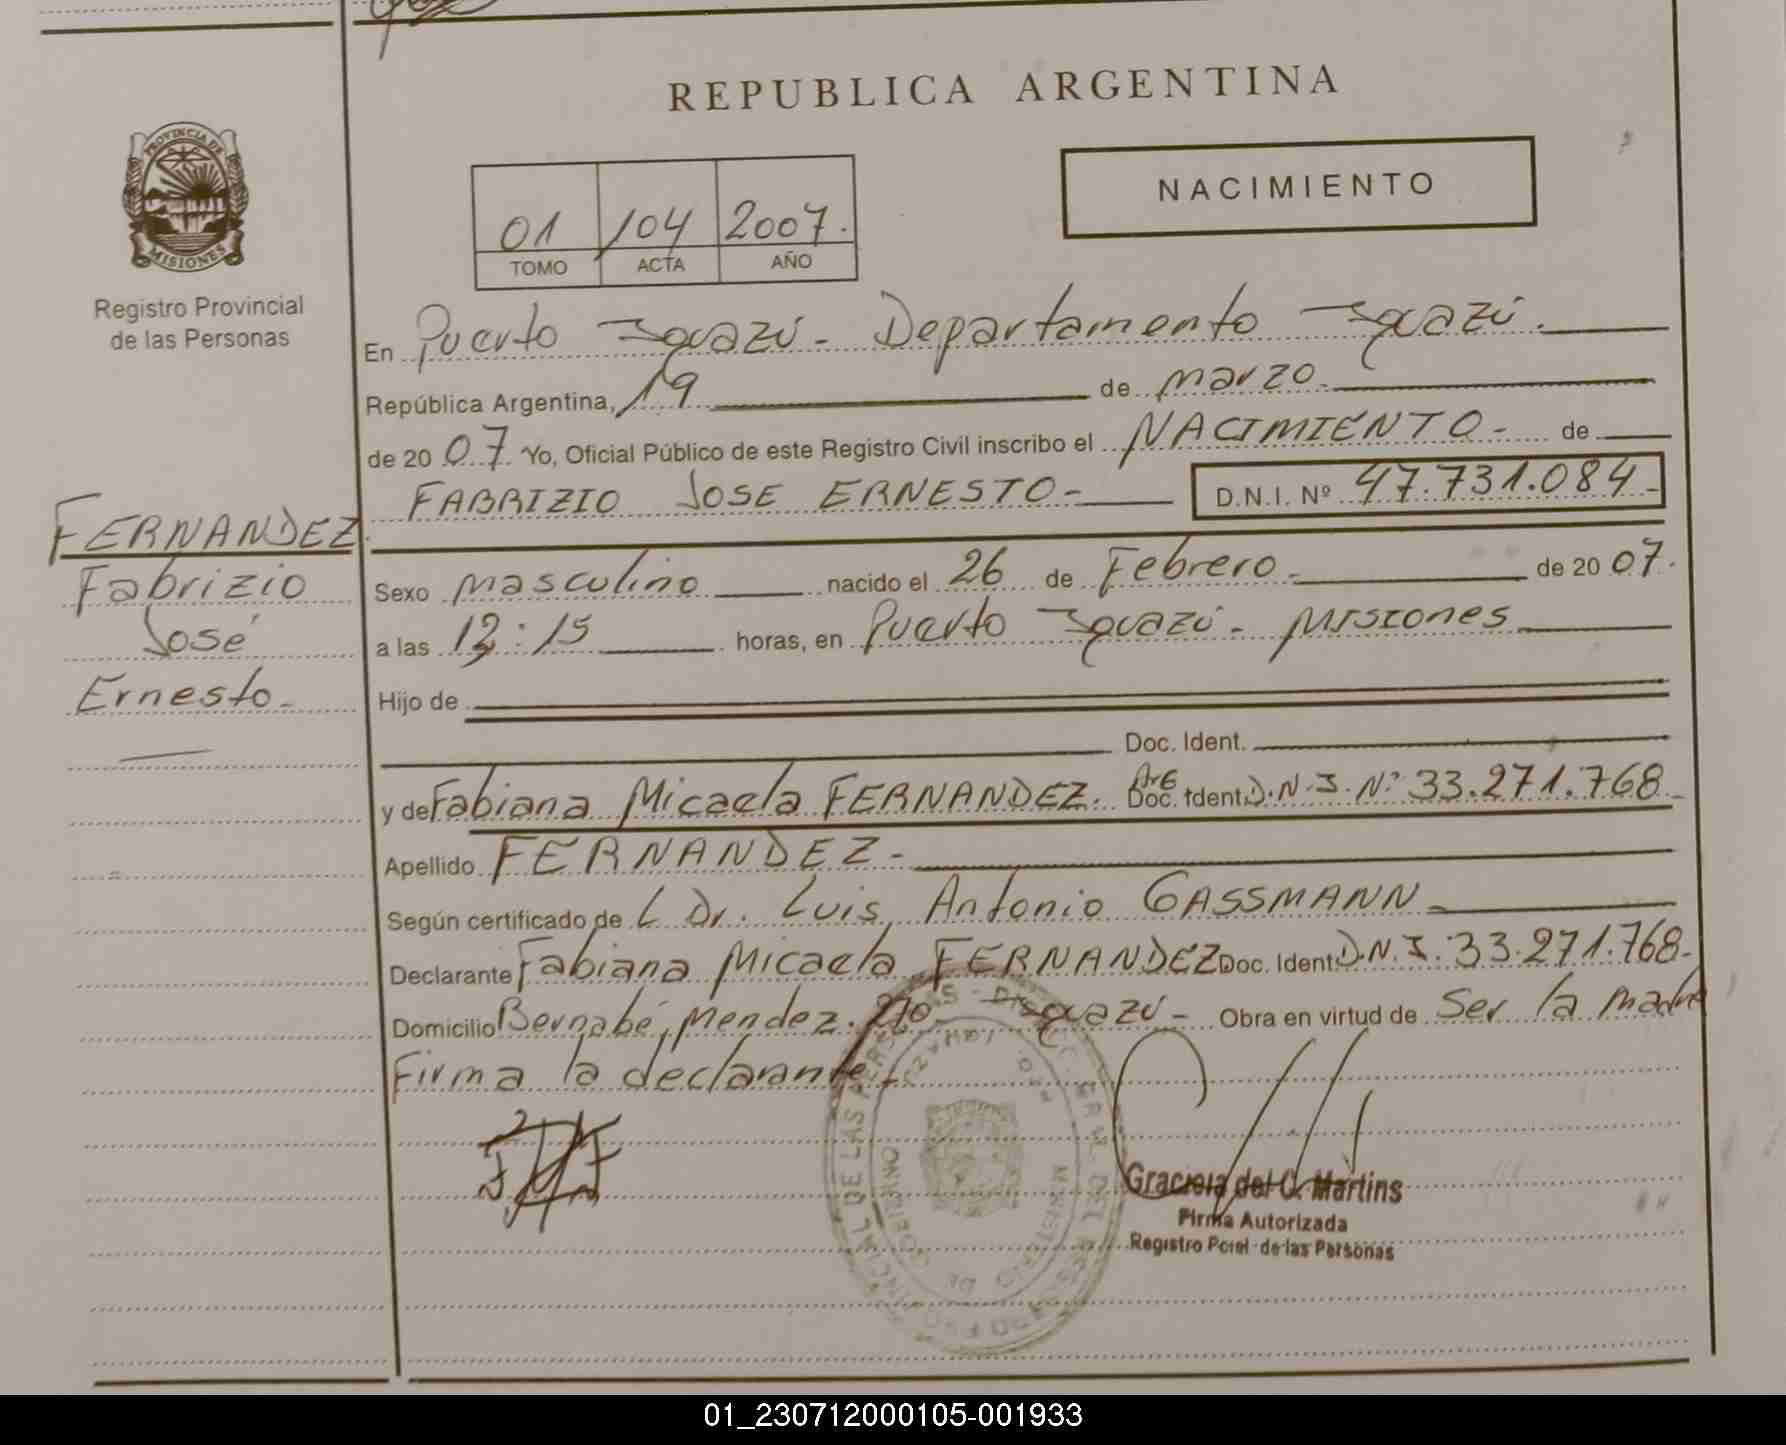 REPUBLICA ARGENTINA
NACIMIENTO
01 104 2007.
TOMO ACTA AÑO
PROVINCIA DE
MISIONES
Registro Provincial
de las Personas
En Puerto Iguazú - Departamento Iguazú.
República Argentina, 19 de marzo.
de 20 07 Yo, Oficial Público de este Registro Civil inscribo el NACIMIENTO - de
FABRIZIO JOSE ERNESTO - D.N.I. Nº 47.731.084 -
FERNANDEZ
Fabrizio
José
Ernesto -
Sexo masculino nacido el 26 de Febrero - de 20 07.
a las 13:15 horas, en Puerto Iguazú - MISIONES
Hijo de
Doc. Ident.
y de Fabiana Micaela FERNANDEZ. Arg Doc. Ident. D.N.I. Nº 33.271.768
Apellido FERNANDEZ -
Según certificado de L Dr. Luis Antonio GASSMANN -
Declarante Fabiana Micaela FERNANDEZ Doc. Ident. D.N.I. 33.271.768 -
Domicilio Bernabé Mendez. 270 - Iguazú - Obra en virtud de Ser la madre
Firma la declarante -
Graciela del C. Martins
Firma Autorizada
Registro Pcial de las Personas
MINISTERIO DE GOBIERNO
01_230712000105-001933